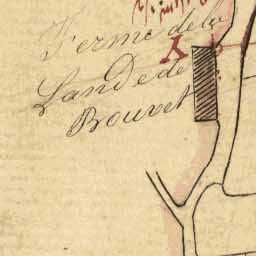 Ferme de la
Lande de
Bouvet
X